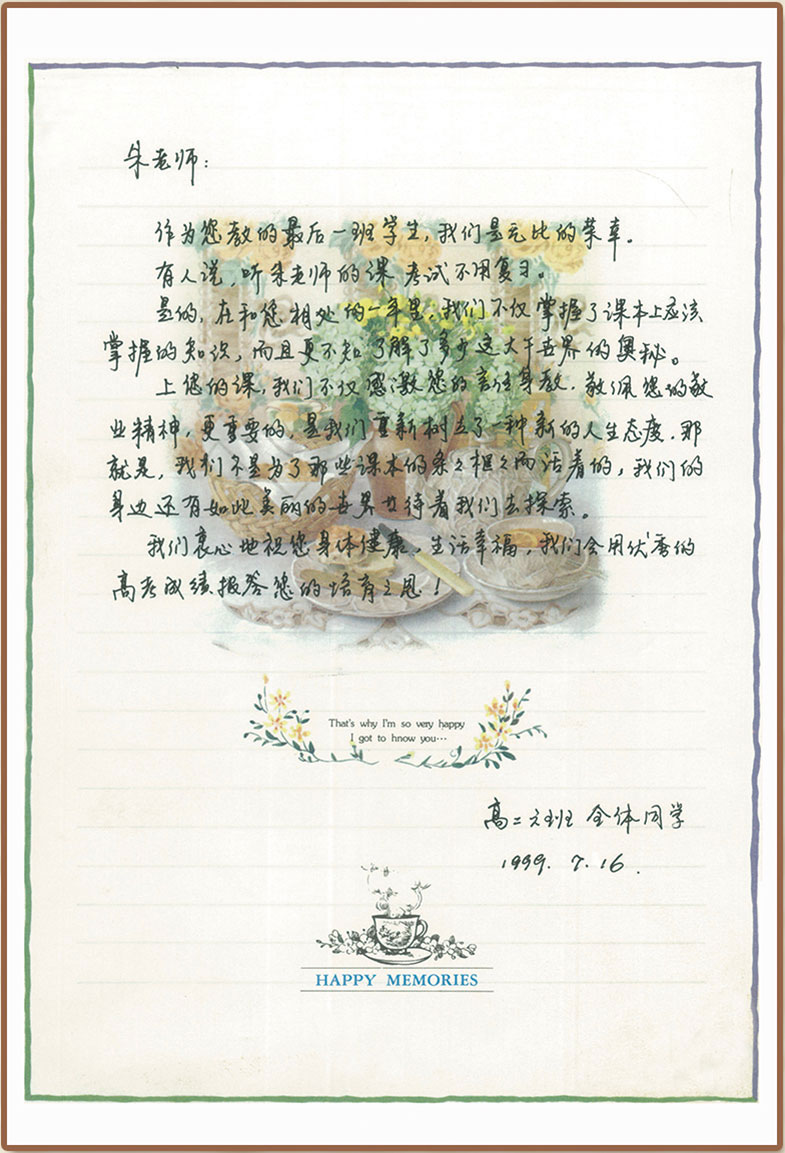 朱老师：
作为您教的最后一班学生，我们是无比的荣幸。
有人说，听朱老师的课 考试不用复习。
是的，在和您相处的一年里，我们不仅掌握了课本上应该
掌握的知识，而且更不知了解了多少这大千世界的奥秘。
上您的课，我们不仅感激您的言传身教，敬佩您的敬
业精神，更重要的，是我们重新树立了一种新的人生态度，那
就是，我们不是为了那些课本的条条框框而活着的，我们的
身边还有如此美丽的世界在待着我们去探索。
我们衷心地祝您身体健康，生活幸福，我们会用优秀的
高考成绩报答您的培育之恩！
That's why I'm so very happy
I got to hnow you…
高二文班 全体同学
1999. 7. 16.
HAPPY MEMORIES